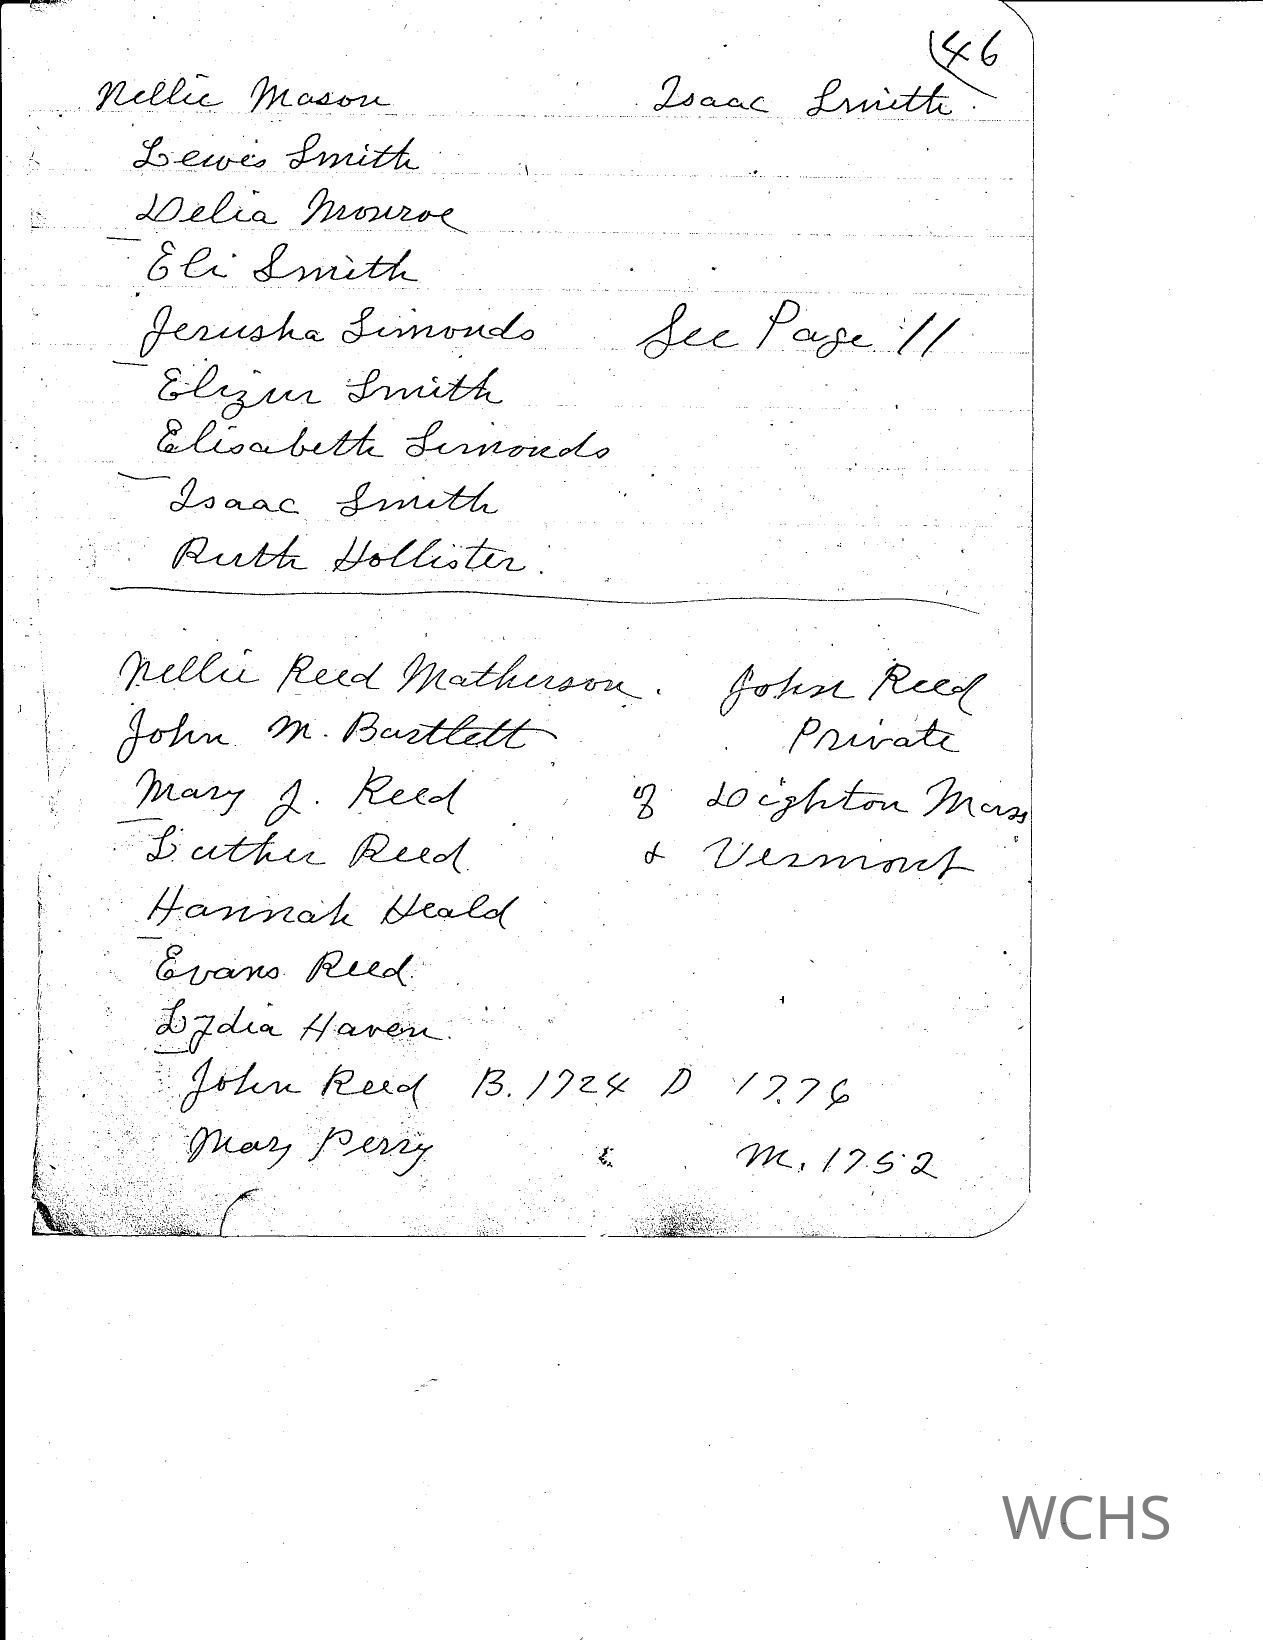 46
Nellie Mason Isaac Smith
Lewis Smith
Delia Monroe
Eli Smith
Jerusha Simonds See Page 11
Elizur Smith
Elisabeth Simonds
Isaac Smith
Ruth Hollister.
Nellie Reed Matherson. John Reed
John M. Bartlett Private
Mary J. Reed of Dighton Mass
Luther Reed & Vermont
Hannah Heald
Evans Reed
Lydia Haven
John Reed B. 1724 D 1776
Mary Perry M. 1752
WCHS